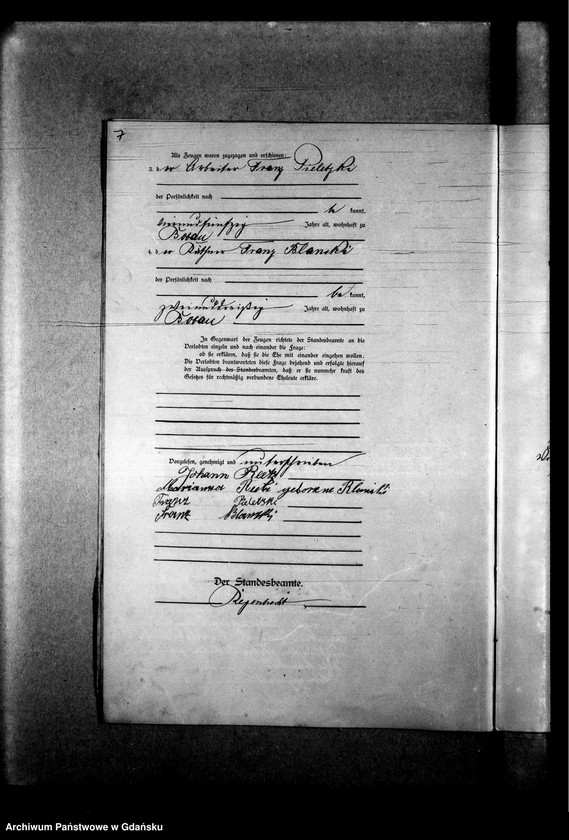 7
Als Zeugen waren zugezogen und erschienen:
3. der Arbeiter Franz Pieletzki
der Persönlichkeit nach
be kannt,
Jahre alt, wohnhaft zu
Bossau
4. der Käthner Franz Klanski
der Persönlichkeit nach
be kannt,
zweiunddreißig Jahre alt, wohnhaft zu
Bossau
In Gegenwart der Zeugen richtete der Standesbeamte an die
Verlobten einzeln und nach einander die Frage:
ob sie erklären, daß sie die Ehe mit einander eingehen wollen.
Die Verlobten beantworteten diese Frage bejahend und erfolgte hierauf
der Ausspruch des Standesbeamten, daß er sie nunmehr kraft des
Gesetzes für rechtmäßig verbundene Eheleute erkläre.
Vorgelesen, genehmigt und unterschrieben
Johann
Marianna geborene
Franz
Frank
Der Standesbeamte.
Archiwum Państwowe w Gdańsku